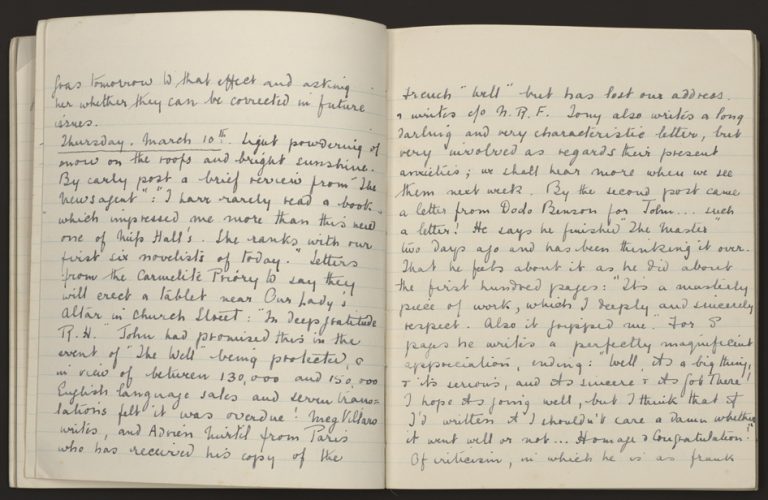 was tomorrow to that effect and asking
her whether they can be corrected in future
issues.
Thursday. March 10th. Light powdering of
snow on the roofs and bright sunshine.
By early post a brief review from "The
Newsagent": "I have rarely read a book
which impressed me more than this new
one of Miss Hall's. She ranks with our
first six novelists of today." Letters
from the Carmelite Priory to say they
will erect a tablet near Our Lady's
Altar in Church Street: "In deep gratitude
R.H." John had promised this in the
event of "The Well" being protected, &
in view of between 130,000 and 150,000
English language sales and seven trans-
lations felt it was overdue! Meg Villars
writes, and Adrien from Paris
who has received his copy of the
French "Well" but has lost our address.
& writes c/o N.R.F. Tony also writes a long
darling and very characteristic letter, but
very involved as regards their present
anxieties; we shall hear more when we see
them next week. By the second post came
a letter from Dodo Benson for John... such
a letter! He says he finished "The Master"
two days ago and has been thinking it over.
That he feels about it as he did about
the first hundred pages: "Its a masterly
piece of work, which I deeply and sincerely
respect. Also it gripped me." For 8
pages he writes a perfectly magnificent
appreciation, ending: "Well, its a big thing,
& its serious, and its sincere & its got There!
I hope its going well, but I think that if
I'd written it I shouldn't care a Damn whether
it went well or not... Homage & Congratulation!"
Of criticism, in which he is as frank